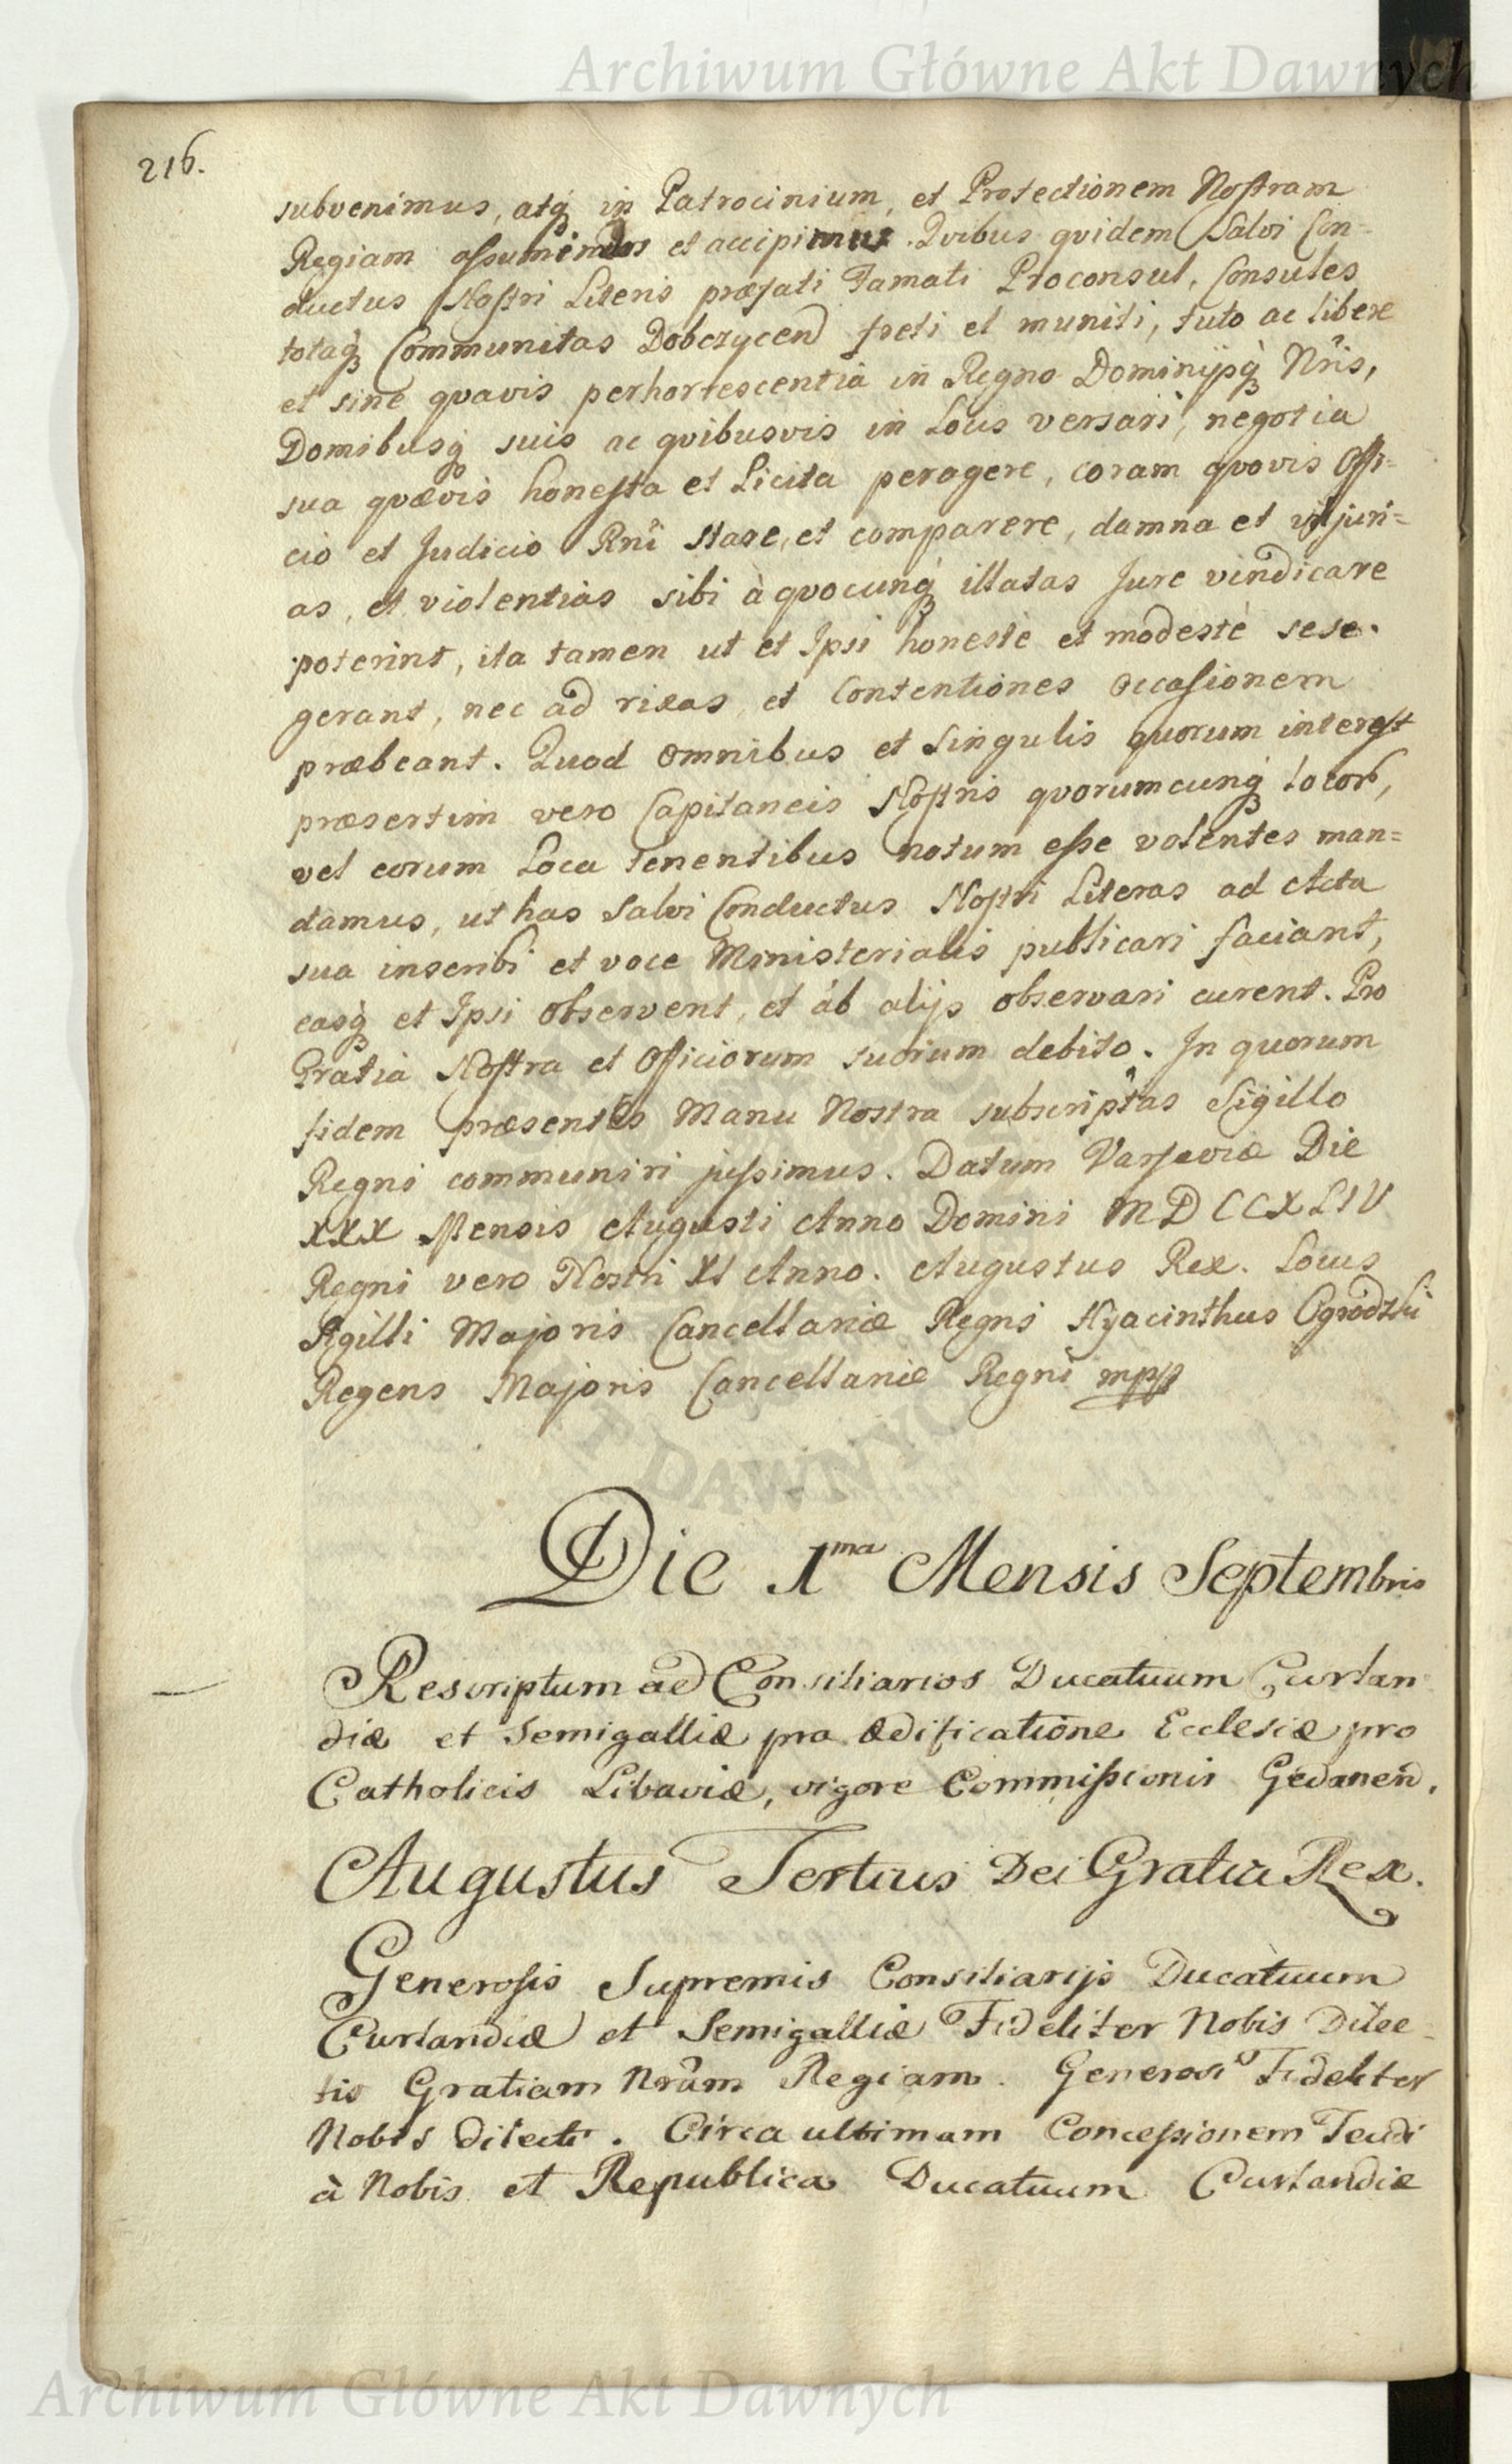 Archiwum Główne Akt Dawnych
216.
subvenimus, atq́ in Patrocinium, et Protectionem Nostram
Regiam assumimus et accipimus. Qvibus qvidem Salvi Con-
ductus Nostri Literis præfati Famati Proconsul, Consules
totaq́ Communitas Dobczycen freti et muniti, tuto ac libere
et sine qvavis perhorrescentia in Regno Dominijsq́ Nris,
Domibusq́ suis ac qvibusvis in Locis versari, negotia
sua qvævis honesta et Licita peragere, coram qvovis Offi=
cio et Judicio Rni stare, et comparere, damna et injuri=
as, et violentias sibi à qvocunq́ illatas Jure vindicare
poterint, ita tamen ut et Ipsi honestè et modestè sese
gerant, nec ad rixas, et Contentiones occasionem
præbeant. Quod omnibus et singulis quorum interest
præsertim vero Capitaneis Nostris qvorumcunq́ locor,
vel eorum Loca tenentibus notum esse volentes man=
damus, ut has Salvi Conductus Nostri Literas ad Acta
sua inscribi et voce Ministerialis publicari faciant,
easq́ et Ipsi observent, et ab alijs observari curent. Pro
Gratia Nostra et Officiorum suorum debito. In quorum
fidem præsentes Manu Nostra subscriptas Sigillo
Regni communiri jussimus. Datum Varsaviæ Die
XXX Mensis Augusti Anno Domini MDCCXLIV
Regni vero Nostri XI Anno. Augustus Rex. Locus
Sigilli Majoris Cancellariæ Regni Hyacinthus Ogrodzki
Regens Majoris Cancellariæ Regni mpp
Die 1ma Mensis Septembris
Rescriptum ad Consiliarios Ducatuum Curlan-
diæ et Semigalliæ pro ædificatione Ecclesiæ pro
Catholicis Libaviæ, vigore Commissionis Gedanen.
Augustus Tertius Dei Gratia Rex.
Generosis Supremis Consiliarijs Ducatuum
Curlandiæ et Semigalliæ Fideliter Nobis Dilec-
tis Gratiam Nram Regiam. Generosi Fideliter
Nobis dilecti. Circa ultimam Concessionem Feudi
à Nobis et Republica Ducatuum Curlandiæ
Archiwum Główne Akt Dawnych